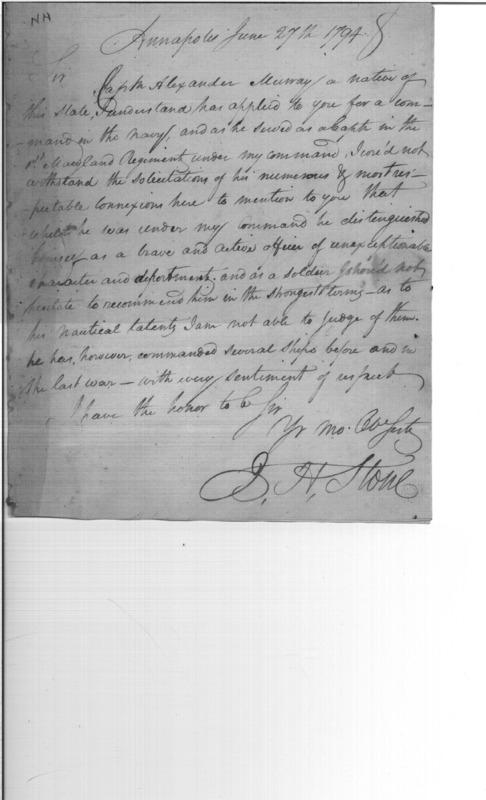 NH
Annapolis June 27th 1794
Sir
Capth Alexander Murray a native of
this State, I understand has applied to you for a com-
-mand in the navy, and as he served as a Captn in the
1st Maryland Regiment under my command, I cou'd not
withstand the solicitations of his numerous & most res-
-pectable connexions here to mention to you that
whilst he was under my command he distinguished
himself as a brave and active officer of unexceptionable
character and deportment, and as a soldier I shou'd not
hesitate to recommend him in the strongest terms — as to
his nautical talents I am not able to judge of them.
he has, however, commanded several ships before and in
the last war — with every sentiment of respect
I have the honor to be Sir
Yr mo. Obe Servt
J. H. Stone